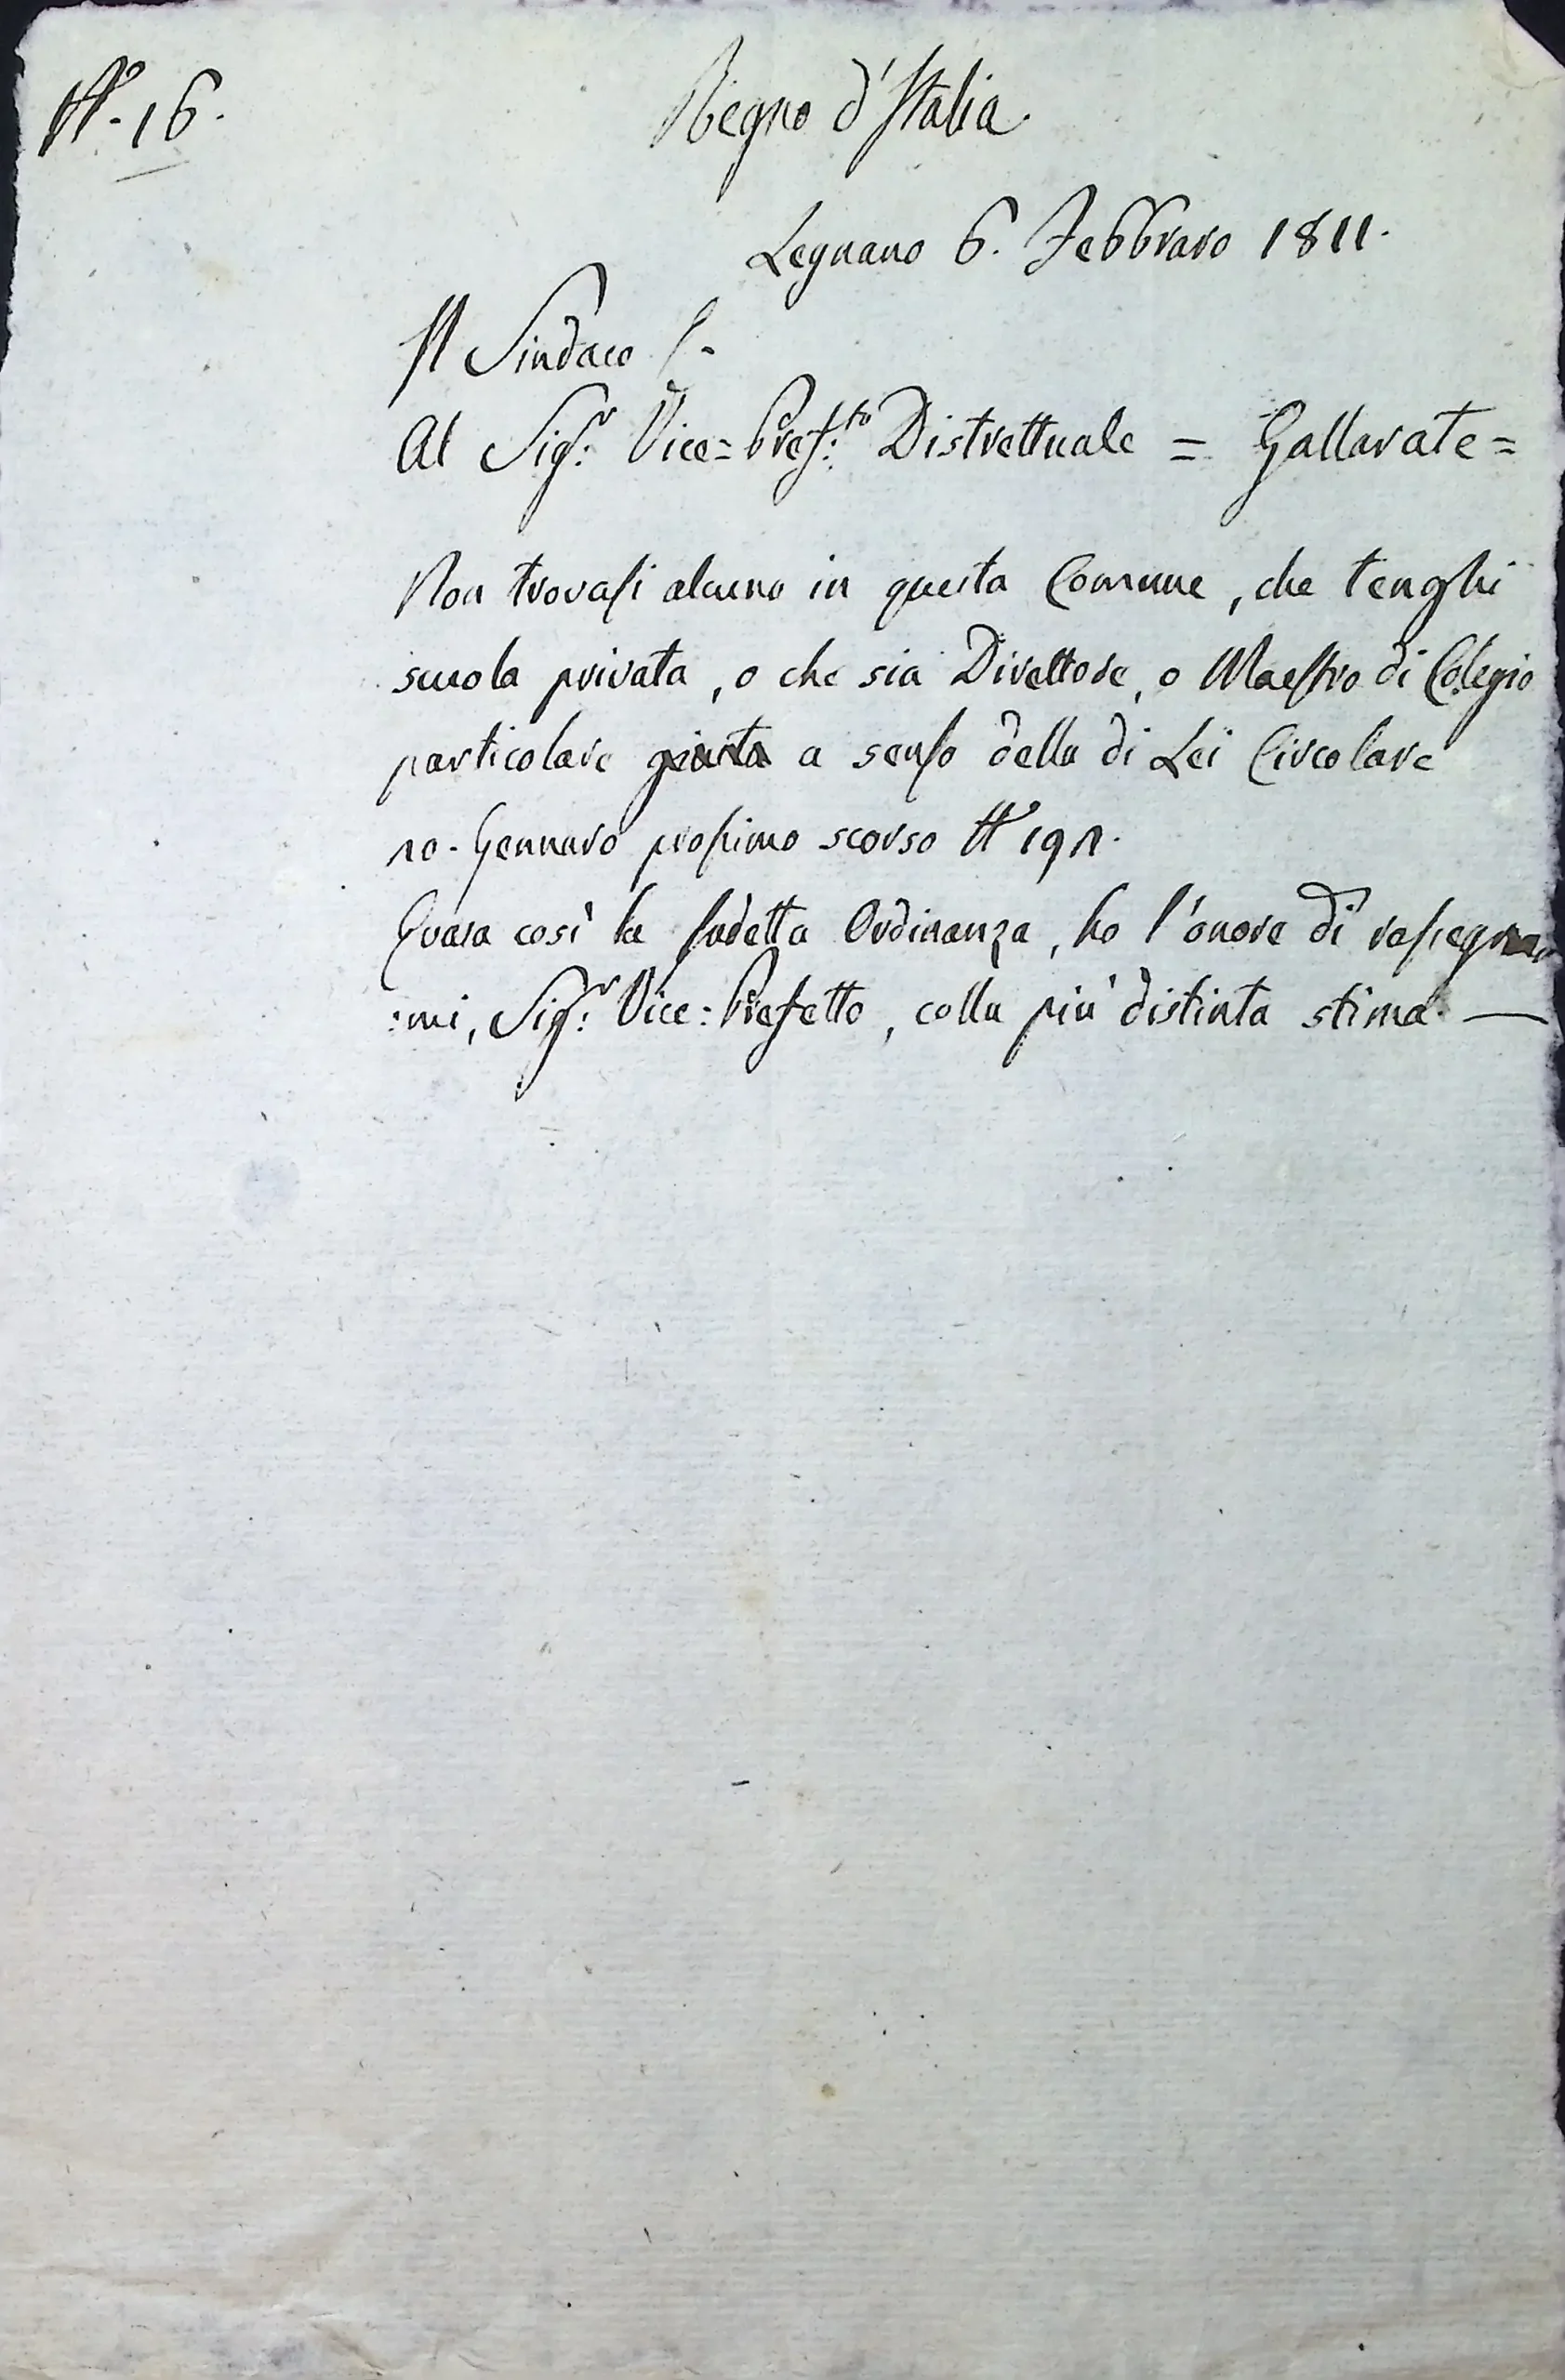 N°. 16.
Regno d'Italia.
Legnano 6. Febbraro 1811.
Il Sindaco
Al Sig.r Vice=Pref.to Distrettuale = Gallarate =
Non trovasi alcuno in questa Comune, che tenghi
scuola privata, o che sia Direttore, o Maestro di Colegio
particolare a senso della di Lei Circolare
10. Gennaro prossimo scorso N° 191.
Evasa così la sudetta Ordinanza, ho l'onore di rassegnar
:mi, Sig.r Vice: Prefetto, colla più distinta stima. —